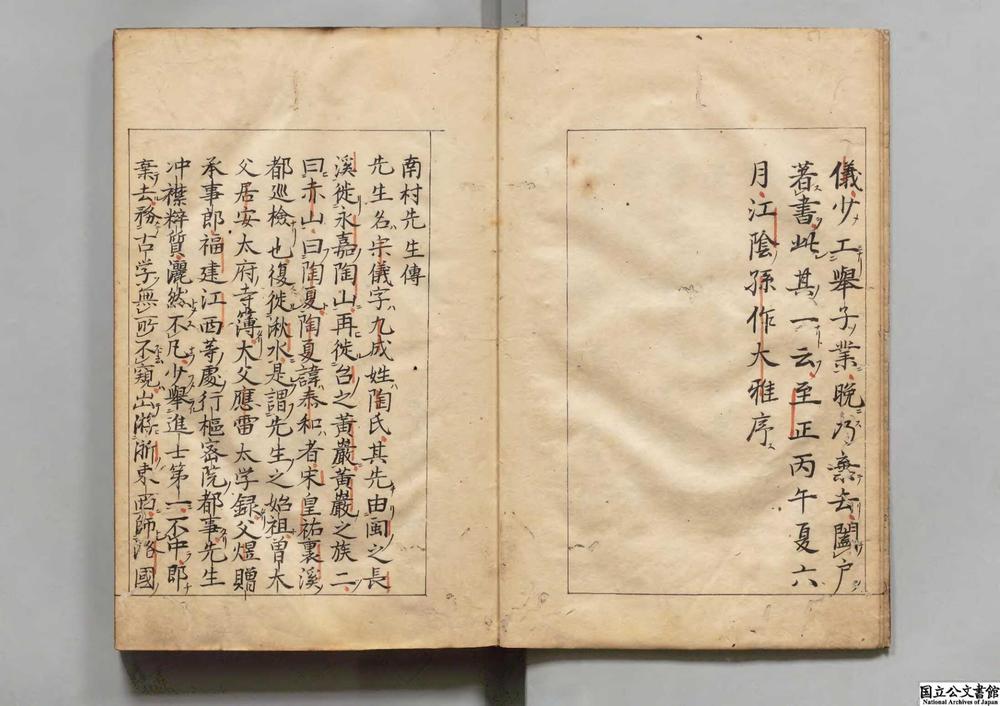 儀少工舉子業晚乃棄去闔戶
著書此其一云至正丙午夏六
月江陰孫作大雅序
南村先生傳
先生名宗儀字九成姓陶氏其先由閩之長
溪徙永嘉陶山再徙台之黃巖黃巖之族二
曰赤山曰陶夏陶夏諱泰和者宋皇祐裏溪
都巡檢也復徙湫水是謂先生之始祖曾大
父居安太府寺簿大父應雷太学録父煜贈
承事郎福建江西等處行樞密院都事先生
冲襟粹質灑然不凡少舉進士第一不中即
棄去務古学無所不窺出游浙東西師潞國
国立公文書館
National Archives of Japan